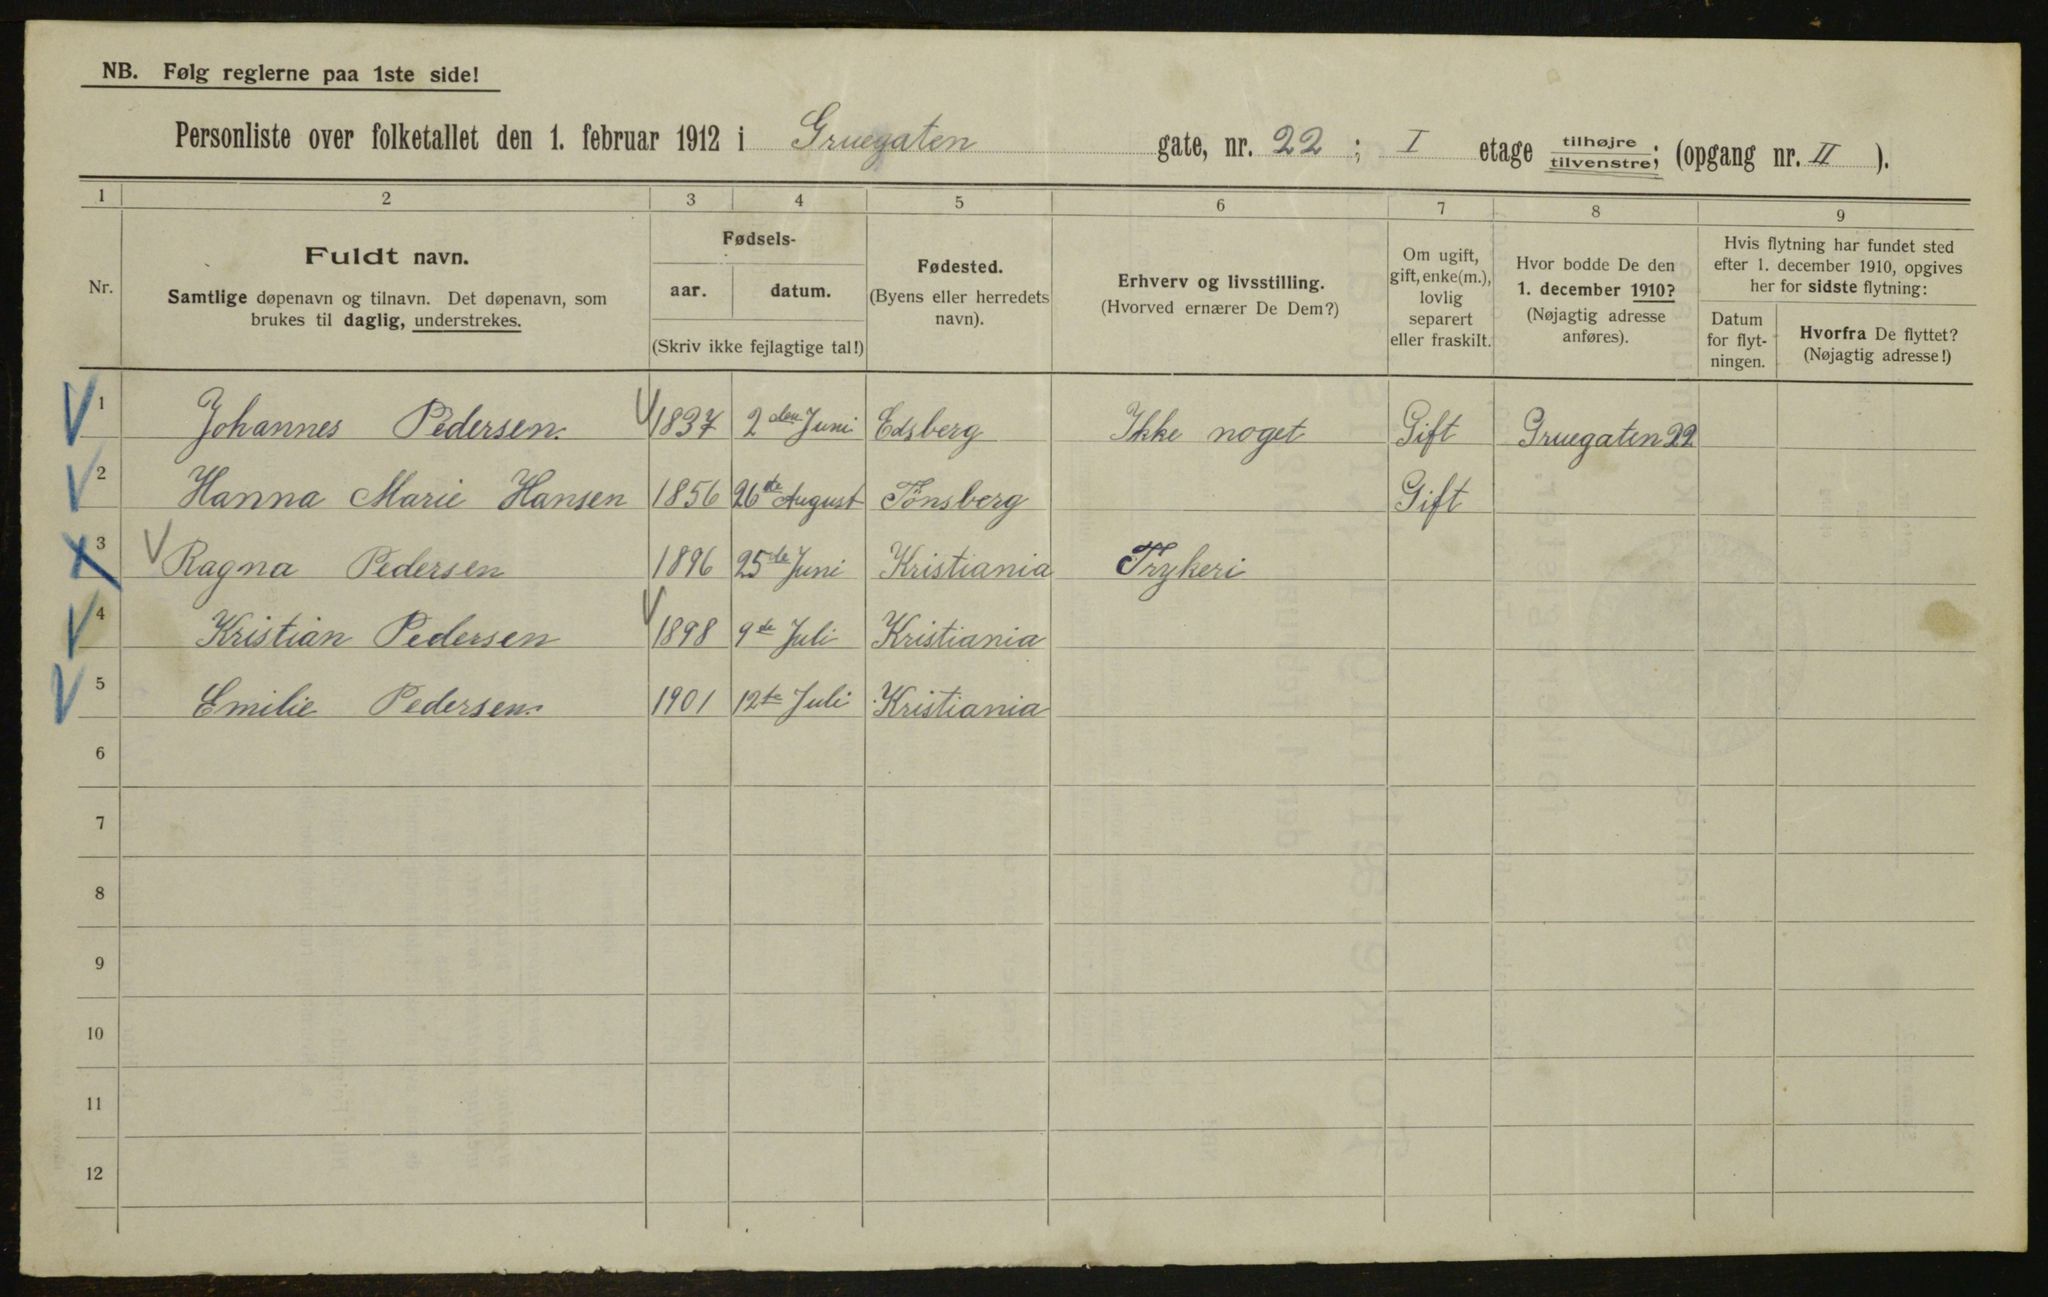 NB. Følg reglerne paa 1ste side!
Personliste over folketallet den 1. februar 1912 i Gruegaten gate, nr. 22 ; I etage tilhøjre tilvenstre; (opgang nr. II ).
1 2 3 4 5 6 7 8 9
Nr.
Fuldt navn.
Samtlige døpenavn og tilnavn. Det døpenavn, som
brukes til daglig, understrekes.
Fødsels-
aar. datum.
(Skriv ikke fejlagtige tal!)
Fødested.
(Byens eller herredets
navn).
Erhverv og livsstilling.
(Hvorved ernærer De Dem?)
Om ugift,
gift, enke(m.),
lovlig
separert
eller fraskilt.
Hvor bodde De den
1. december 1910?
(Nøjagtig adresse
anføres).
Hvis flytning har fundet sted
efter 1. december 1910, opgives
her for sidste flytning:
Datum
for flyt-
ningen.
Hvorfra De flyttet?
(Nøjagtig adresse!)
1 Johannes Pedersen. 1837 2den Juni Edsberg Ikke noget Gift Gruegaten 22
2 Hanna Marie Hansen 1856 26de August Tønsberg Gift
3 Ragna Pedersen 1896 25de Juni Kristiania Trykeri
4 Kristian Pedersen 1898 9de Juli Kristiania
5 Emilie Pedersen. 1901 12te Juli Kristiania
6
7
8
9
10
11
12